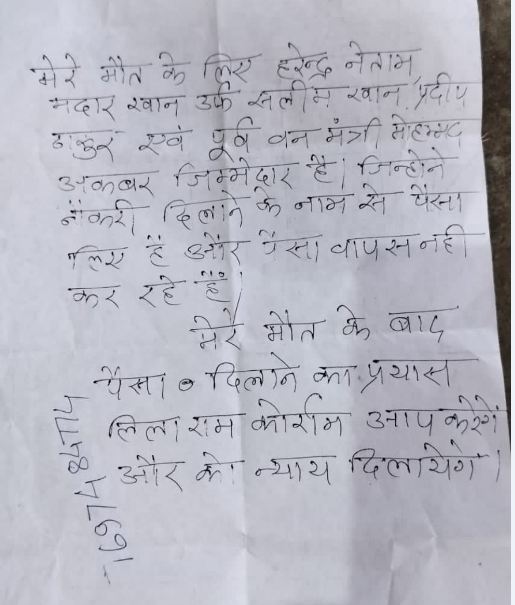 मेरे मौत के लिए हरेन्द्र नेताम,
मदार खान उर्फ सलीम खान, प्रदीप
ठाकुर एवं पूर्व वन मंत्री मोहम्मद
अकबर जिम्मेदार है। जिन्होने
नौकरी दिलाने के नाम से पैसा
लिए है और पैसा वापस नही
कर रहे हैं।
मेरे मौत के बाद
पैसा दिलाने का प्रयास
लिला राम कोर्राम आप करेगें
और को न्याय दिलायेगें।